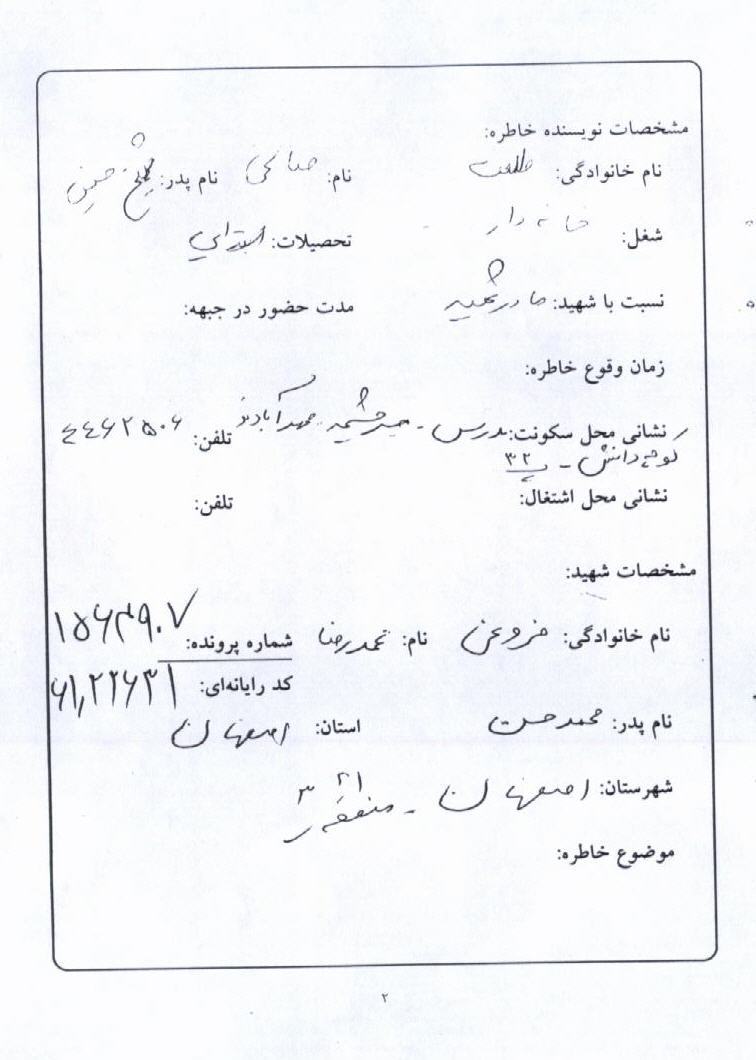 مشخصات نویسنده خاطره:
نام خانوادگی: طلعت نام: صالحی نام پدر: شیخ حسین
شغل: خانه دار تحصیلات: ابتدایی
نسبت با شهید: مادر شهید مدت حضور در جبهه:
زمان وقوع خاطره:
نشانی محل سکونت: مدرس - سرچشمه - مهدآباد نو تلفن: ٤٤٦٢٥٠٦
کوی دانش - پ ۳۲
نشانی محل اشتغال: تلفن:
مشخصات شهید:
نام خانوادگی: فروغی نام: محمدرضا شماره پرونده:
کد رایانه‌ای:
نام پدر: محمدحسن استان: اصفهان
شهرستان: اصفهان - منطقه ۳
موضوع خاطره:
۲